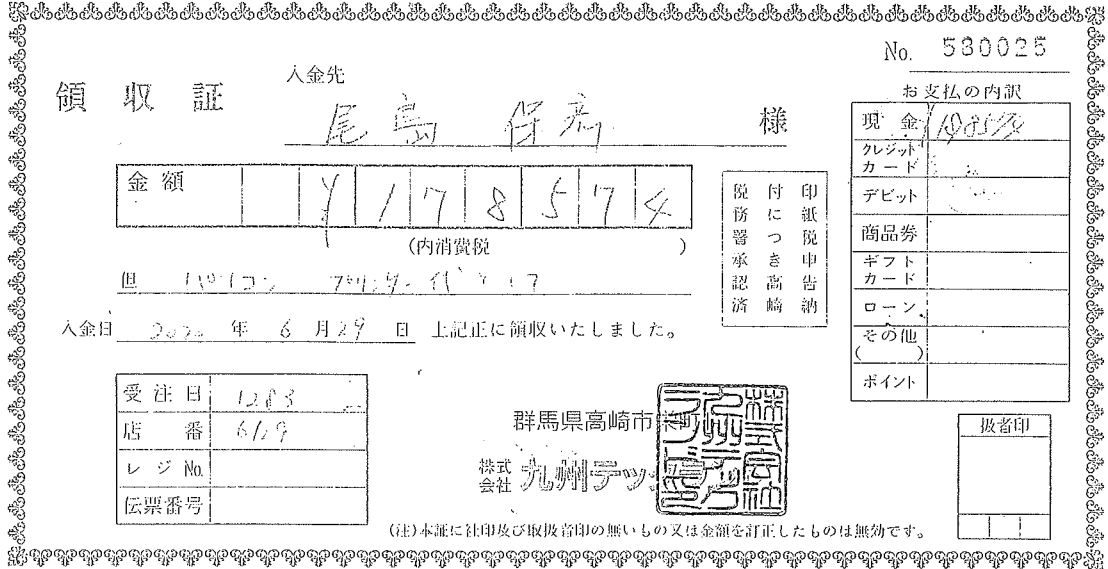 No. 530025
領収証
入金先
尾島 保彦 様
金額 ¥178574
(内消費税 )
但 パソコン プリンター代として
入金日 2020年 6月29日 上記正に領収いたしました。
印紙税申告納
付につき高崎
税務署承認済
お支払の内訳
現金
クレジットカード
デビット
商品券
ギフトカード
ローン
その他
( )
ポイント
受注日 1283
店番 6/29
レジNo.
伝票番号
群馬県高崎市栄町
株式会社 九州テッ
扱者印
(注)本証に社印及び取扱者印の無いもの又は金額を訂正したものは無効です。